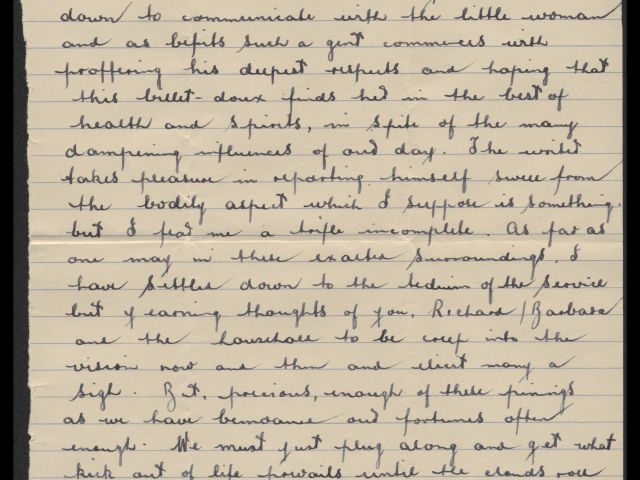 down to communicate with the little woman
and as befits such a gent commences with
proffering his deepest respects and hoping that
this billet-doux finds her in the best of
health and spirits, in spite of the many
dampening influences of our day. The writer
takes pleasure in reporting himself swell from
the bodily aspect which I suppose is something.
but I fear me a trifle incomplete. As far as
one may in these exalted surroundings, I
have settled down to the tedium of the service
but yearning thoughts of you, Richard / Barbara
and the household to be creep into the
vision now and then and elicit many a
sigh. But, precious, enough of these pinings
as we have bemoaned our fortunes often
enough. We must just plug along and get what
kick out of life prevails until the clouds roll